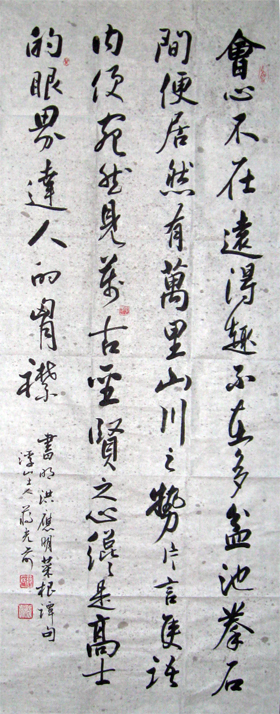 會心不在遠得趣不在多盆池拳石
間便居然有萬里山川之勢片言隻語
内便宛然見萬古聖賢之心纔是高士
的眼界達人的胷襟
書明洪應明菜根譚句
浮山